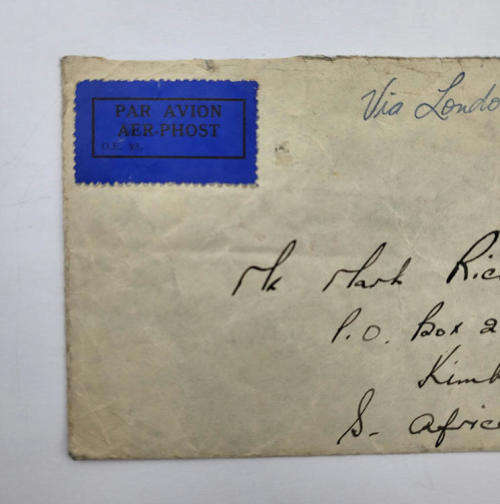 PAR AVION
AER-PHOST
Via Londo
Mr Mark Ric
P.O. Box 2
Kimb
S. Africa